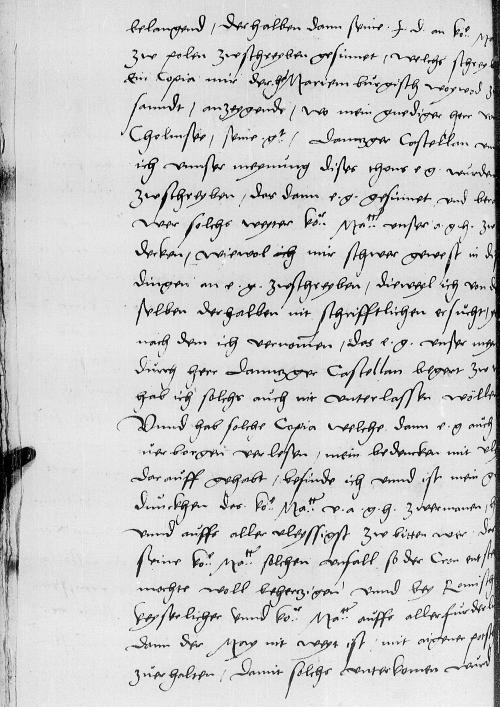 belangend, derhalben dann seine f. d. an ko.
zw polen zwschreyben gesinnet, welchs schrey
ein Copia mir der h. Marienburgisch woywod
sanndt, anzeygende, wo mein gnediger herr
Cholmsee, seine g., Dannzger Castellan
ich unnser meynung dises thons e. g. wurden
zwschreyben, der dann e. g. gesinnet und
wer solchs weyter ko. Mat. unser a. g. h.
decken, wiewol ich mir schwer gewest in
dingen an e. g. zwschreyben, dieweyl ich von
selben derhalben nit schrifftlichen ersucht,
nach dem ich vernomen, das e. g. unser
durch herr Dannzger Castellan begert zw
hab ich solchs auch nit unterlassen wöllen
Unnd hab solche Copia welche dann e. g. auch
unverborgen verlesen, mein bedencken mit
darauff gehabt, befinde ich unnd ist mein
dunckhen das ko. Mat. u. a. g. h. zwermanen,
unnd auffs aller vleyssigst zw bitten wer,
seine ko. Mat. solchen unfall so der Cron
mochte woll behertzigen unnd bey Romisch
keyserlicher unnd ko. Mat. auffs allerfurder
dann der May nit weyt ist, mit aigener
zuerhalten, damit solchs unterkomen wurd